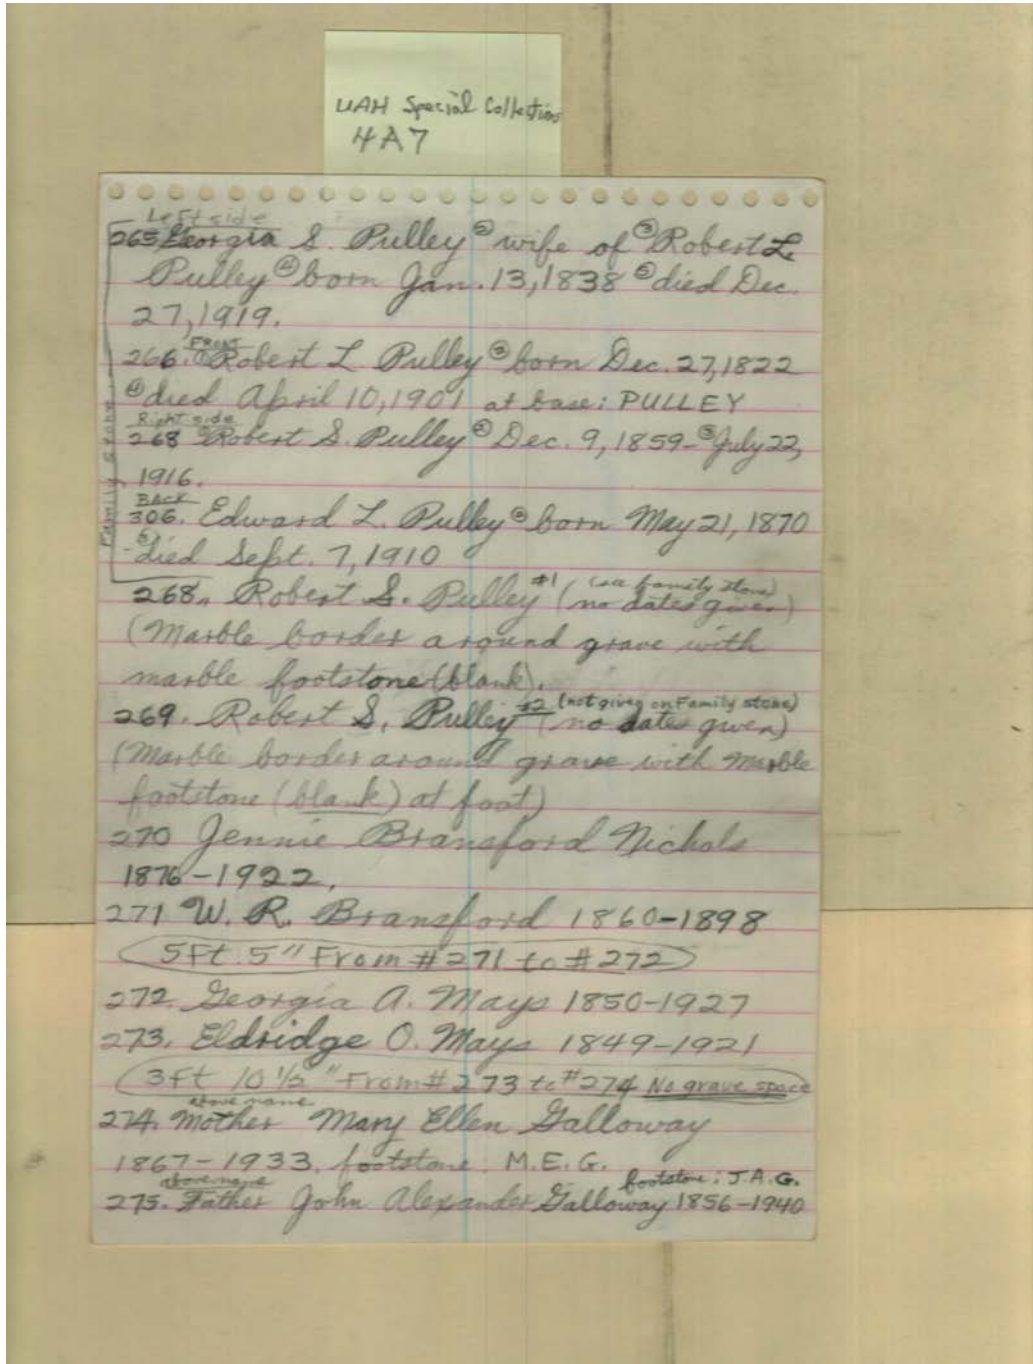 UAH Special Collections
4A7
Left side
265 Georgia S. Pulley ② wife of ③ Robert L.
Pulley ④ born Jan. 13, 1838 ⑤ died Dec.
27, 1919.
FRONT
266. Robert L Pulley ③ born Dec. 27, 1822
④ died April 10, 1901 at base: PULLEY
Right side
268 Robert S. Pulley ② Dec. 9, 1859 - ③ July 22,
1916.
BACK
306. Edward L. Pulley ② born May 21, 1870
③ died Sept. 7, 1910
Family Stone
268. Robert S. Pulley #1 (see family stone) (no dates given)
(Marble border around grave with
marble footstone (blank).
269. Robert S. Pulley #2 (not given on Family stone) (no dates given)
(Marble border around grave with Marble
footstone (blank) at foot)
270 Jennie Bransford Nichols
1876-1922.
271 W. R. Bransford 1860-1898
5Ft. 5" From #271 to #272
272. Georgia A. Mays 1850-1927
273. Eldridge O. Mays 1849-1921
3Ft 10 1/2 "From #273 to #274 No grave space
above name
274. Mother Mary Ellen Galloway
1867-1933. footstone: M.E.G.
above name footstone: J.A.G.
275. Father John Alexander Galloway 1856-1940